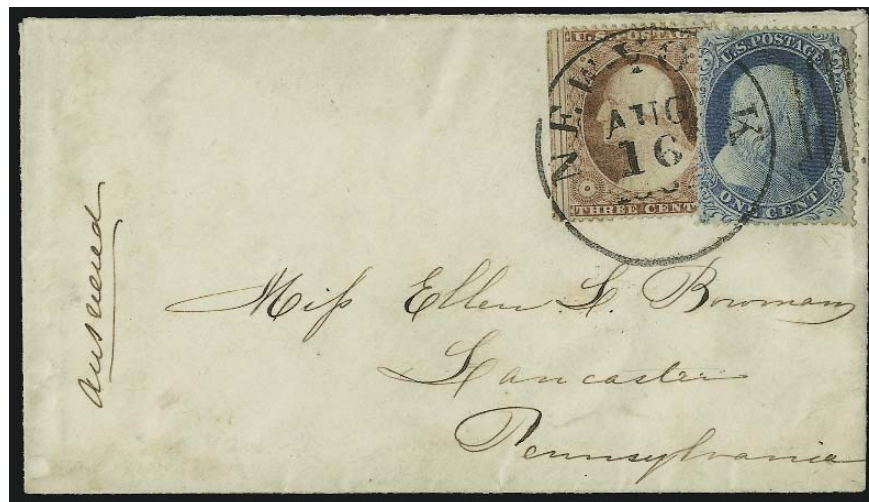 U.S. POSTAGE
U.S. POSTAGE
NEW YORK
AUG
16
THREE CENTS
ONE CENT
answered
Miss Ellen L. Bowman
Lancaster
Pennsylvania